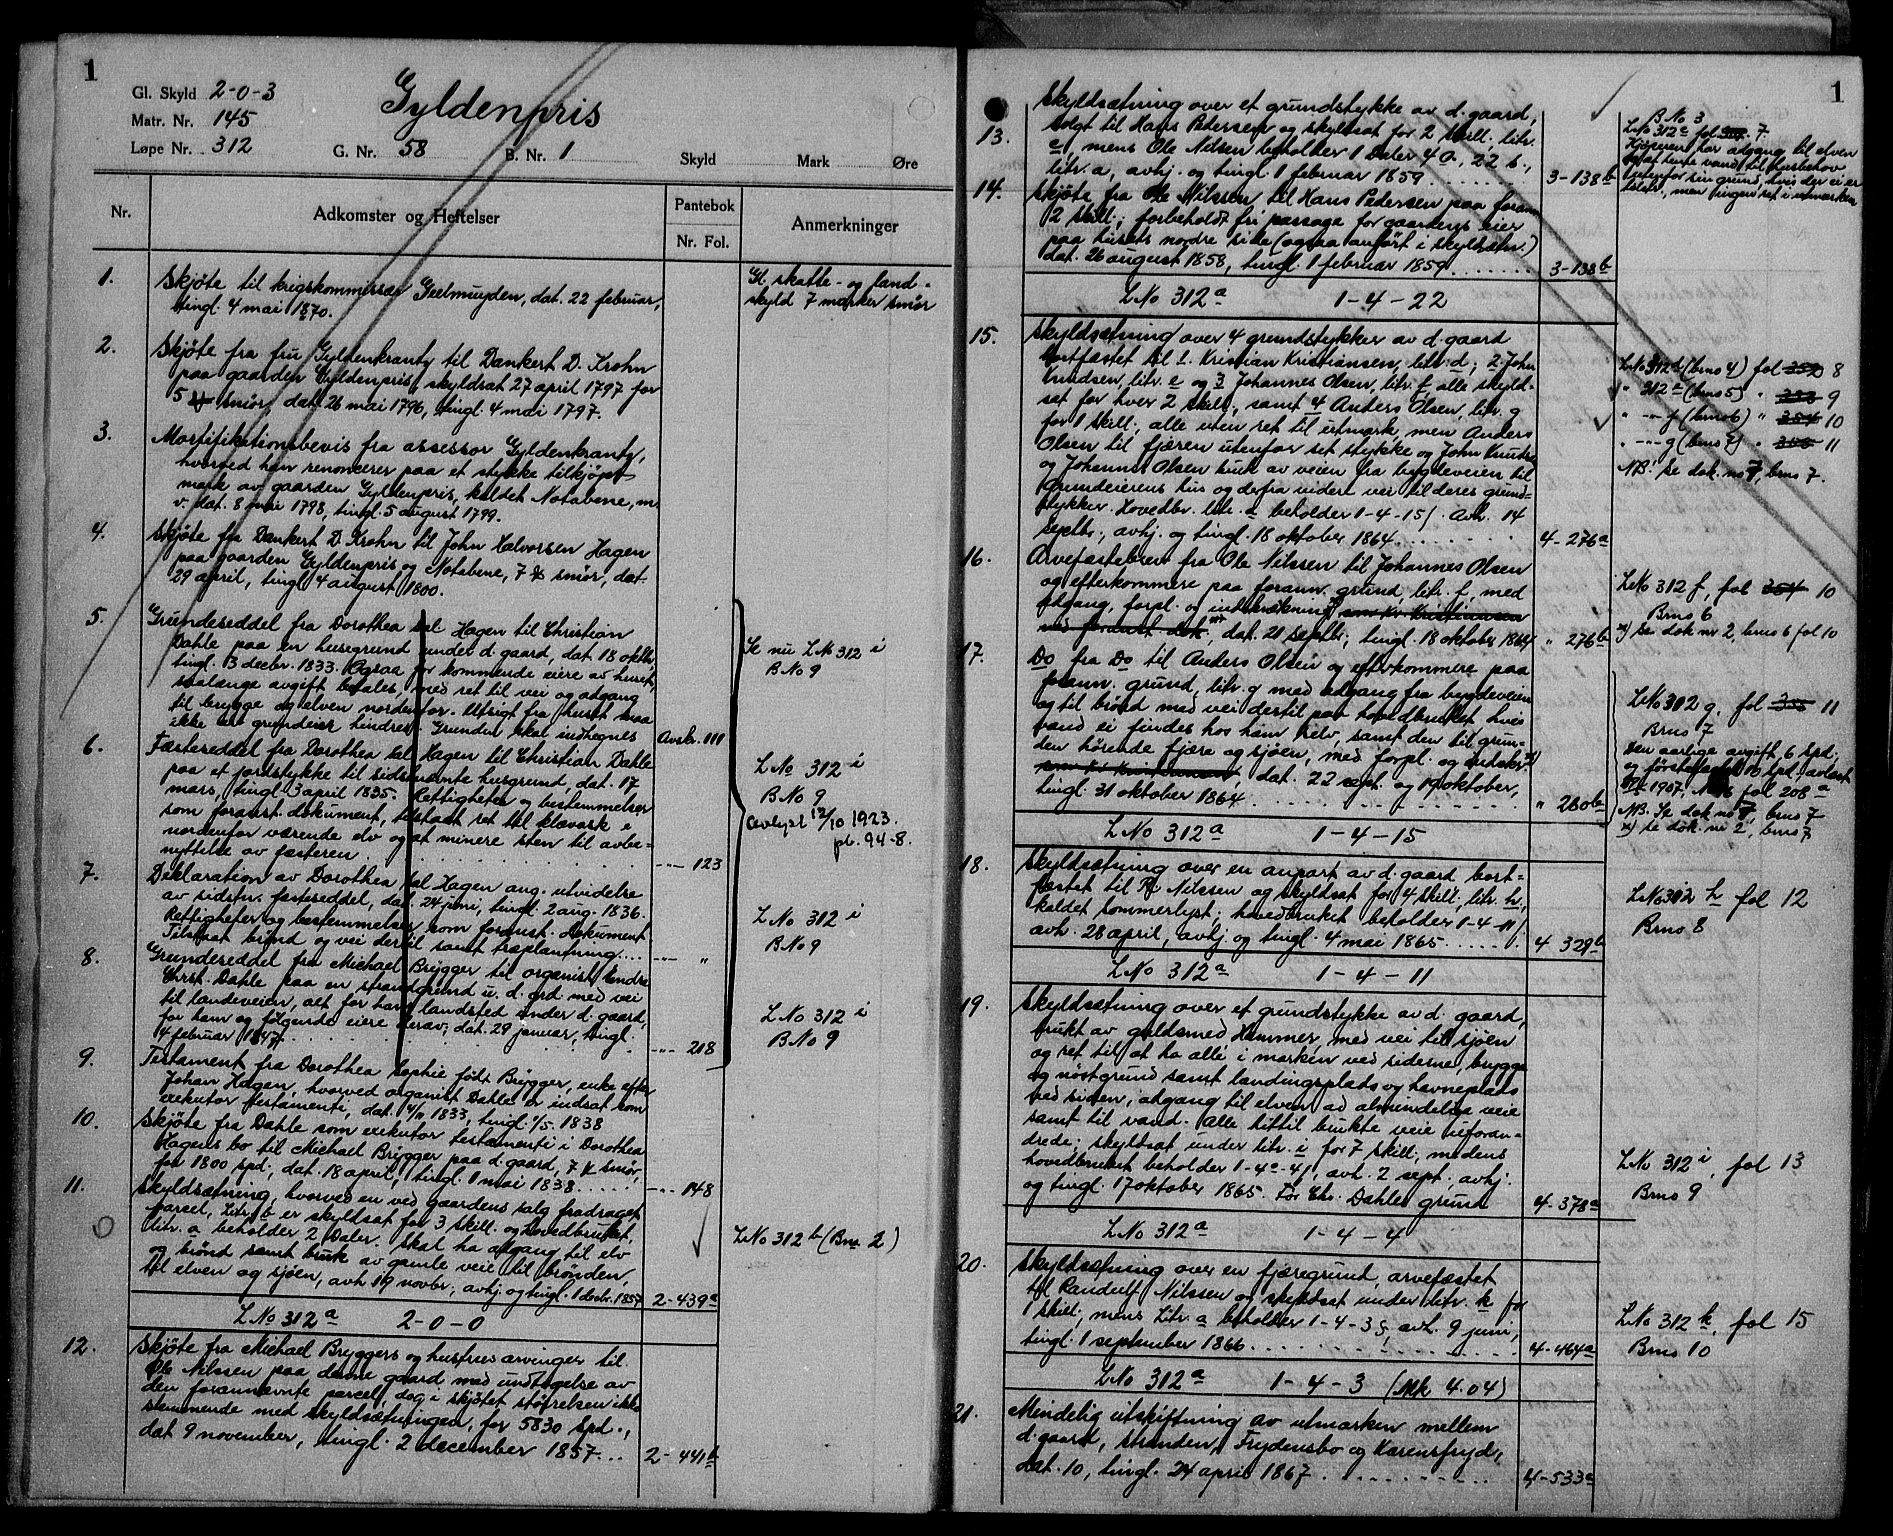 1
Gl. Skyld 2-0-3
Gyldenpris
Matr. Nr. 145
Løpe Nr. 312 G. Nr. 58 B. Nr. 1 Skyld Mark Øre
Nr. Adkomster og Heftelser Pantebok Anmerkninger
Nr. Fol.
1. Skjøte til krigskommissær Geelmuyden, dat. 22 februar,
tingl. 4 mai 1870.
Gl. skatte- og land-
skyld 7 marker smør
2. Skjøte fra fru Gyldenkrantz til Dankert D. Krohn
paa gaarden Gyldenpris, skyldsat 27 april 1797 for
5 smør, dat. 26 mai 1796, tingl. 4 mai 1797.
3. Mortifikationsbevis fra assessor Gyldenkrantz,
hvorved han renoncerer paa et stykke tilkjøpt
mark av gaarden Gyldenpris, kaldet Notabene, m.
v. dat. 8 mai 1798, tingl. 5 august 1799.
4. Skjøte fra Dankert D. Krohn til John Halvorsen Hagen
paa gaarden Gyldenpris og Notabene, 7 smør, dat.
29 april, tingl. 4 august 1800.
5. Grundeseddel fra Dorothea sal. Hagen til Christian
Dahle paa en husegrund under d. gaard, dat. 18 oktbr.,
tingl. 13 decbr. 1833. Ogsaa for kommende eiere av huset,
saalænge avgift betales, med ret til vei og adgang
til brygge og elven nordenfor. Utsigt fra huset maa
ikke av grundeier hindres. Grunden skal indhegnes Avskr. 111
Se nu L No 312 i
B No 9
6. Fæsteseddel fra Dorothea sal. Hagen til Christian Dahle
paa et jordstykke til sidstnævnte husgrund, dat. 17
mars, tingl. 3 april 1835. Rettigheter og bestemmelser
som forannt. dokument, tilstaat ret til klævask i
nordenfor værende elv og at minere sten til avbe-
nyttelse av fæsteren. --- 123
L No 312 i
B No 9
Avlyst 12/10 1923.
pb. 94-8.
7. Deklaration av Dorothea sal. Hagen ang. utvidelse
av sidstn. fæsteseddel, dat. 24 juni, tingl. 2 aug. 1836.
Rettigheter og bestemmelser som forannt. dokument.
Tilstaat brønd og vei dertil samt træplantning.... --- "
L No 312 i
B No 9
8. Grundeseddel fra Michael Brygger til organist Endre
Chrst. Dahle paa en strandgrund u. d. grd. med vei
til landeveien, alt for hans landsted under d. gaard,
for ham og følgende eiere herav; dat. 29 januar, tingl.
4 februar 1847. --- 218
L No 312 i
B No 9
9. Testament fra Dorothea Sophie født Brygger, enke efter
Johan Hagen, hvorved organist Dahle er indsat som
exekutor testamenti, dat. 4/11 1833, tingl. 1/5. 1838
10. Skjøte fra Dahle som exekutor testamenti i Dorothea
Hagens bo til Michael Brygger paa d. gaard, 7 smør,
for 1800 spd., dat. 18 april, tingl. 1 mai 1838..... --- 148
11. Skyldsætning, hvorved en ved gaardens salg fradraget
parcel, Litr. b er skyldsat for 3 skill. og hovedbruket,
litr. a beholder 2 Daler. Skal ha adgang til elv
og brønd samt bruk av gamle veie til brønden,
til elven og sjøen, avh. 19 novbr., avhj. og tingl. 1 decbr. 1857 2-439a
L No 312 b (Bno 2)
L No 312 a 2-0-0
12. Skjøte fra Michael Bryggers og husfrues arvinger til
Ole Nilssen paa denne gaard med undtagelse av
den forannævnte parcel, dog i skjøtet størrelsen ikke
stemmende med skyldsætningen, for 5830 Spd.,
dat 9 november, tingl. 2 december 1857... 2-441b
1
13. Skyldsætning over et grundstykke av d. gaard,
solgt til Hans Pedersen og skyldsat for 2 skill., litr.
c, mens Ole Nilsen beholder 1 Daler 4 O., 22 s.,
litr. a, avhj. og tingl. 1 februar 1859 ........ 3-138b
B No 3
L No 312 c fol 7.
Kjøperen har adgang til elven
og at hente vand til husbehov
utenfor sin grund, hvis der ei er
tilstr., men ingen ret i utmarken
14. Skjøte fra Ole Nilssen til Hans Pedersen paa forann.
2 skill.; forbeholdt fri passage for gaardens eier
paa husets nordre side (ogsaa anført i skyldsætn.)
dat. 26 august 1858, tingl. 1 februar 1859...... 3-138b
L No 312 a 1-4-22
15. Skyldsætning over 4 grundstykker av d. gaard
bortfæstet til 1. Kristian Kristiansen, litr. d; 2. John
Knudsen, litr. e og 3 Johannes Olsen, litr. f, alle skyld-
sat for hver 2 skill., samt 4 Anders Olsen, litr. g
for 1 skill., alle uten ret til utmark, men Anders
Olsen til fjæren utenfor sit stykke og John Knudsen
og Johannes Olsen bruk av veien fra bygdeveien til
Grundeierens hus og derfra videre vei til deres grund-
stykker. Hovedbr. litr. a beholder 1-4-15/. Avh. 14
septbr., avhj. og tingl. 18 oktober 1864.......... 4-276a
L No 312 d (bno 4) fol 359 8
" 312 e (bno 5) " 9
" --- f (bno 6) " 354 10
" --- g (bno 7) " 355 11
NB! Se dok. no 7, bno 7.
16. Arvefæstebrev fra Ole Nilssen til Johannes Olsen
og efterkommere paa forann. grund, litr. f, med
adgang, forpl. og indskrækning som Kr. Kristiansen
med forannt. dok., dat. 21 septbr., tingl. 18 oktober 1864 " 276b
L No 312 f, fol 354 10
Bno 6
x) Se dok nr 2, bno 6 fol 10
17. Do fra Do til Anders Olsen og efterkommere paa
forann. grund, litr. g med adgang fra bygdeveien
og til brønd med vei dertil paa hovedbruket hvis
vand ei findes hos ham selv, samt den til grun-
den hørende fjære og sjøen, med forpl. og indskr. x)
som Kr. Kristiansen, dat. 22 sept. og 19 oktober,
tingl. 31 oktober 1864......... " 280b
L No 312 g, fol 355 11
Bno 7
Den aarlige avgift, 6 Spd.
og førstefæstet 10 Spd. avløst
1907. fol 208 a
NB. Se dok no 7, bno 7
x) Se dok. nr 2, bno 7
L No 312 a 1-4-15
18. Skyldsætning over en anpart av d. gaard bort-
fæstet til R. Nilssen og skyldsat for 4 skill. litr. h,
kaldet Sommerlyst; hovedbruket beholder 1-4-11/
avh. 28 april, avhj. og tingl. 4 mai 1865..... 4 329b
L No 312 h fol 12
Bno 8
L No 312 a 1-4-11
19. Skyldsætning over et grundstykke av d. gaard,
brukt av guldsmed Hammer, med vei til sjøen
og ret til at ha alle i marken ved siderne, brygge
og nøstgrund samt landingsplads og havneplads
ved siden, adgang til elven ad almindelige veie
samt til vand. Alle hittil brukte veie uforan-
drede; skyldsat under litr. i for 7 skill., medens
hovedbruket beholder 1-4-4/, avh. 2 sept., avhj.
og tingl. 17 oktober 1865. Før Chr. Dahles grund 4-378a
L No 312 i, fol 13
Bno 9
L No 312 a 1-4-4
20. Skyldsætning over en fjæregrund, arvefæstet
til Randulf Nilssen og skyldsat under litr. k for
1 skill., mens Litr. a beholder 1-4-3 s, avh. 9 juni,
tingl. 1 september 1866........... 4-464a
L No 312 k, fol 15
Bno 10
L No 312 a 1-4-3 (Mk 4.04)
21. Mindelig utskiftning av utmarken mellem
d. gaard, Stranden, Frydensbo og Karensfryd,
dat. 10, tingl. 24 april 1867......... 4-533a